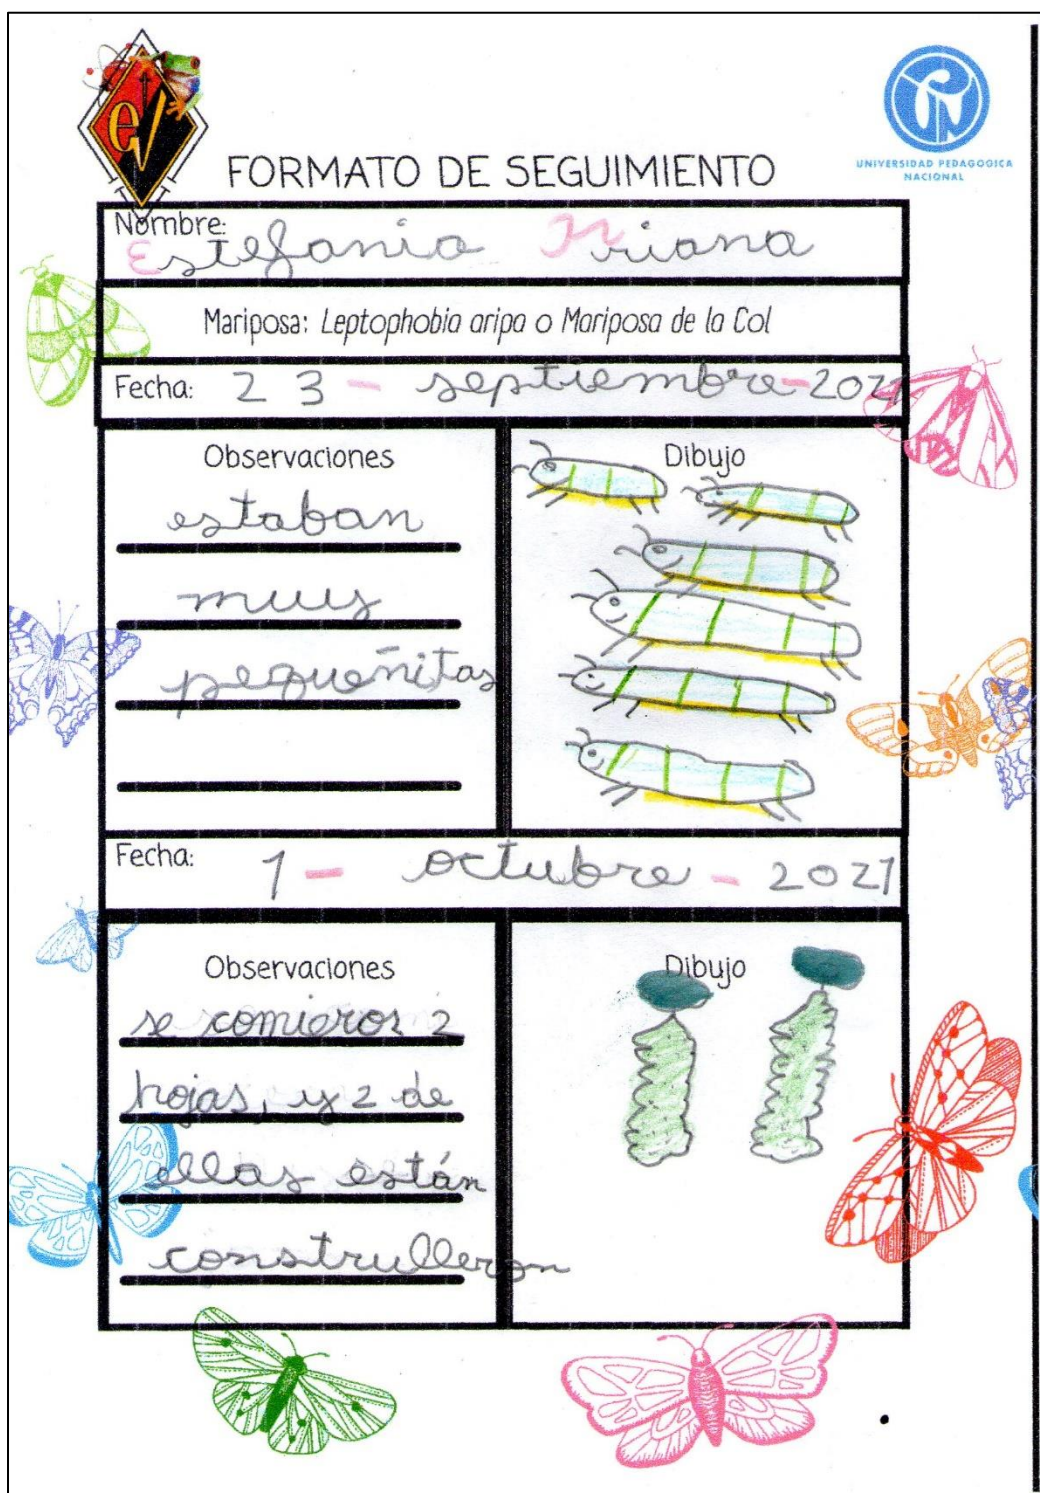 eV
UNIVERSIDAD PEDAGOGICA
NACIONAL
FORMATO DE SEGUIMIENTO
Nombre:
Estefania Triana
Mariposa: Leptophobia aripa o Mariposa de la Col
Fecha: 23 - septiembre - 2021
Observaciones
estaban
muy
pequeñitas
Dibujo
Fecha: 1 - octubre - 2021
Observaciones
se comieros 2
hojas, y 2 de
ellas están
construlleron
Dibujo